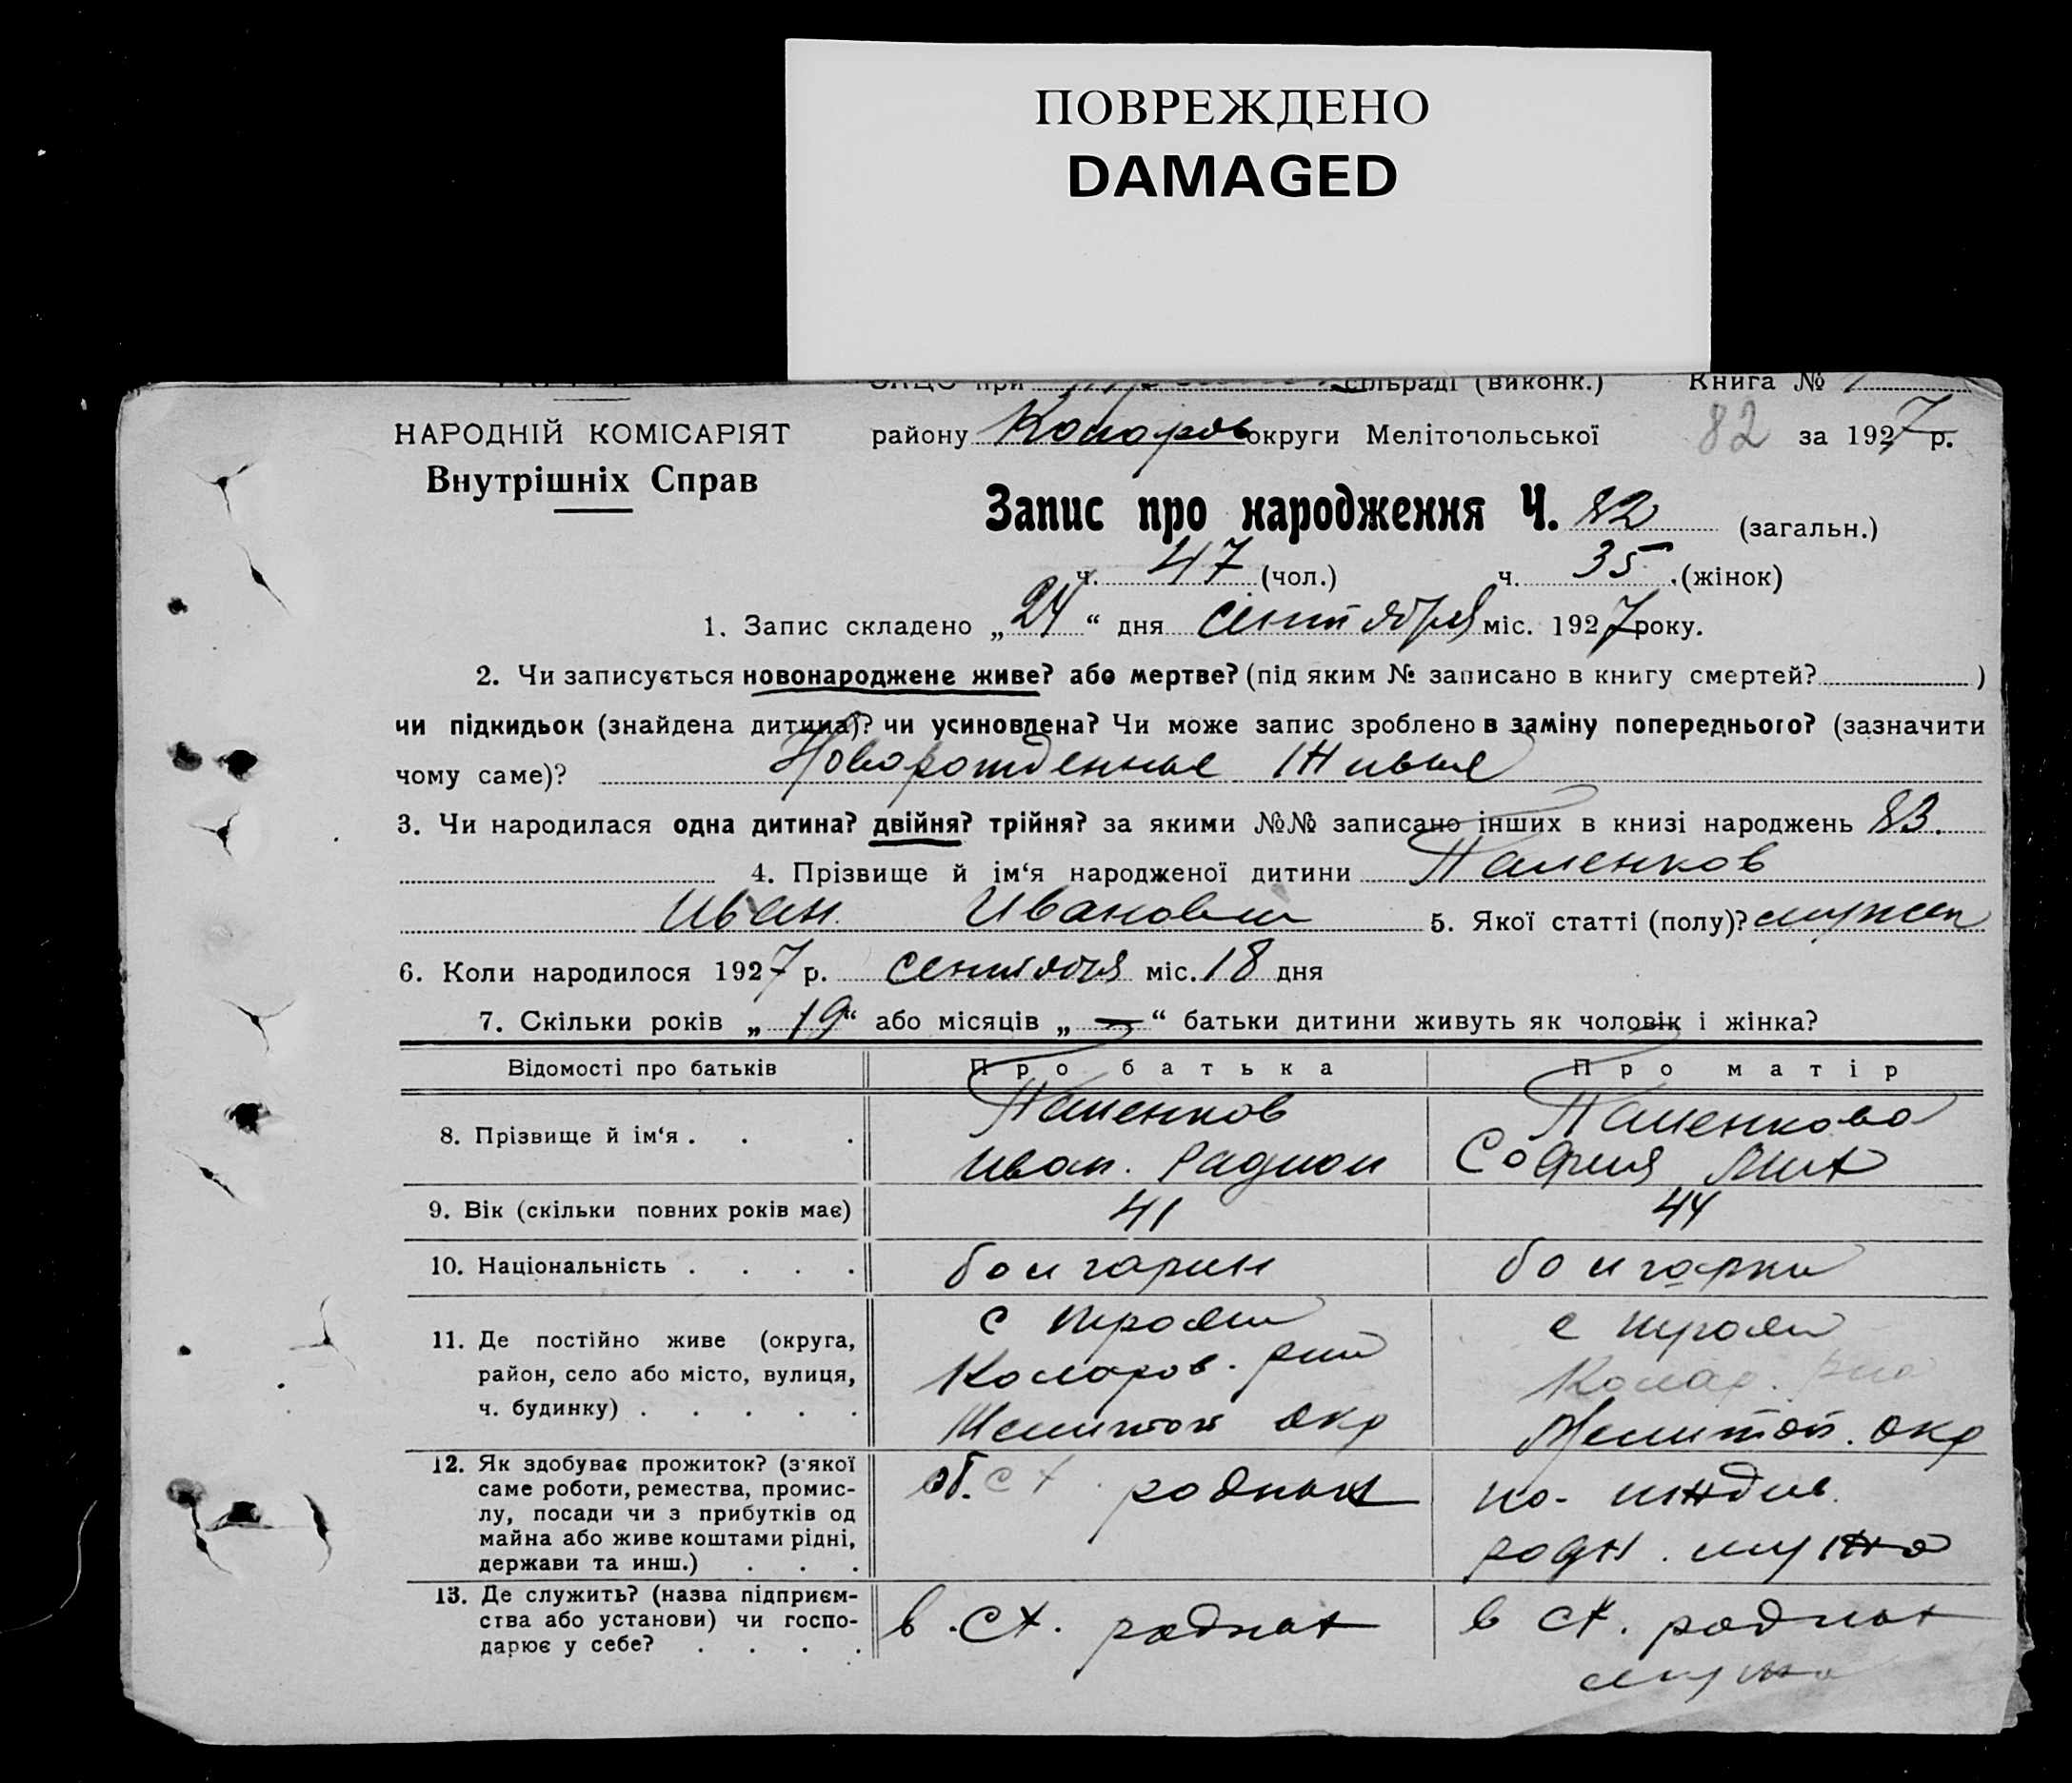 ПОВРЕЖДЕНО
DAMAGED
при сільраді (виконк.) Книга №
НАРОДНІЙ КОМІСАРІЯТ району Коларов округи Мелітопольської 82 за 1927 р.
Внутрішніх Справ
Запис про народження Ч. 82 (загальн.)
ч. 47 (чол.) ч. 35 (жінок)
1. Запис складено „24“ дня сентября міс. 1927 року.
2. Чи записується новонароджене живе? або мертве? (під яким № записано в книгу смертей? )
чи підкидьок (знайдена дитина)? чи усиновлена? Чи може запис зроблено в заміну попереднього? (зазначити
чому саме)? Новорожденные Живые
3. Чи народилася одна дитина? двійня? трійня? за якими №№ записано інших в книзі народжень 83.
4. Прізвище й ім‘я народженої дитини Паленков
Иван. Иванович 5. Якої статті (полу)? мужск
6. Коли народилося 1927 р. сентября міс. 18 дня
7. Скільки років „19“ або місяців „—“ батьки дитини живуть як чоловік і жінка?
Відомості про батьків Про батька Про матір
8. Прізвище й ім‘я . . . Паленков Паленкова
Иван. Радион София Мих
9. Вік (скільки повних років має) 41 44
10. Національність . . . . болгарин болгарка
11. Де постійно живе (округа, с Трояни с Трояни
район, село або місто, вулиця, Коларов. р-на Колар. р-на
ч. будинку) . . . . . Мелитоп окр Мелитоп. окр
12. Як здобуває прожиток? (з‘якої
саме роботи, ремества, промис- об. сх родных по-иждив.
лу, посади чи з прибутків од
майна або живе коштами рідні, родн. мужа
держави та инш.) . . .
13. Де служить? (назва підприєм-
ства або установи) чи госпо- в сх. родных в сх. родных
дарює у себе? . . . . мужа